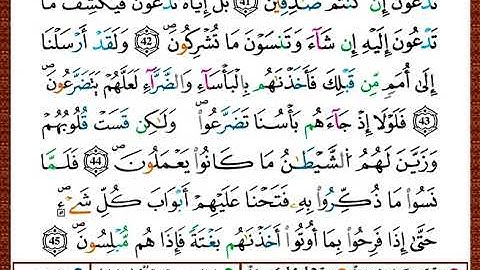 تَدْعُونَ إِن كُنتُمْ صَٰدِقِينَۖ 41 بَلْ إِيَّاهُ تَدْعُونَ فَيَكْشِفُ مَا
تَدْعُونَ إِلَيْهِ إِن شَآءَ وَتَنسَوْنَ مَا تُشْرِكُونَۖ 42 وَلَقَدْ أَرْسَلْنَا
إِلَىٰٓ أُمَمٍ مِّن قَبْلِكَ فَأَخَذْنَٰهُم بِالْبَأْسَآءِ وَالضَّرَّآءِ لَعَلَّهُمْ يَتَضَرَّعُونَۖ
43 فَلَوْلَآ إِذْ جَآءَهُم بَأْسُنَا تَضَرَّعُواْۖ وَلَٰكِن قَسَتْ قُلُوبُهُمْ
وَزَيَّنَ لَهُمُ الشَّيْطَٰنُ مَا كَانُواْ يَعْمَلُونَۖ 44 فَلَمَّا
نَسُواْ مَا ذُكِّرُواْ بِهِۦ فَتَحْنَا عَلَيْهِمْ أَبْوَٰبَ كُلِّ شَےْءٍۖ
حَتَّىٰٓ إِذَا فَرِحُواْ بِمَآ أُوتُوٓاْ أَخَذْنَٰهُم بَغْتَةً فَإِذَا هُم مُّبْلِسُونَۖ 45